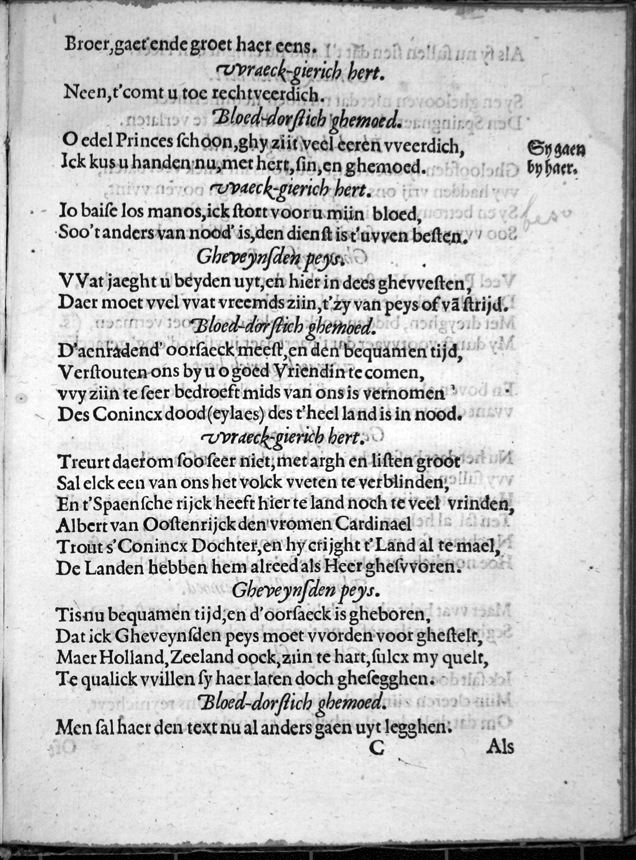 Broer, gaet ende groet haer eens.
vvraeck-gierich hert.
Neen, t'comt u toe rechtveerdich.
Bloed-dorſtich ghemoed.
O edel Princes ſchoon, ghy ziit veel eeren vveerdich,
Ick kus u handen nu, met hert, ſin, en ghemoed.
Sy gaen
by haer.
vvraeck-gierich hert.
Io baiſe los manos, ick ſtort voor u miin bloed,
Soo't anders van nood' is, den dienſt is t'uvven beſten.
Gheveynſden peys.
VVat jaeght u beyden uyt, en hier in dees ghevveſten,
Daer moet vvel vvat vreemds ziin, t'zy van peys of vā ſtrijd.
Bloed-dorſtich ghemoed.
D'aenradend' oorſaeck meeſt, en den bequamen tijd,
Verſtouten ons by u o goed Vriendin te comen,
vvy ziin te ſeer bedroeft mids van ons is vernomen
Des Conincx dood (eylaes) des t'heel land is in nood.
vvraeck-gierich hert.
Treurt daerom ſoo ſeer niet, met argh en liſten groot
Sal elck een van ons het volck vveten te verblinden,
En t'Spaenſche rijck heeft hier te land noch te veel vrinden,
Albert van Ooſtenrijck den vromen Cardinael
Trout s'Conincx Dochter, en hy crijght t'Land al te mael,
De Landen hebben hem alreed als Heer gheſvvoren.
Gheveynſden peys.
Tis nu bequamen tijd, en d'oorſaeck is gheboren,
Dat ick Gheveynſden peys moet vvorden voor gheſtelt,
Maer Holland, Zeeland oock, ziin te hart, ſulcx my quelt,
Te qualick vvillen ſy haer laten doch gheſegghen.
Bloed-dorſtich ghemoed.
Men ſal haer den text nu al anders gaen uyt legghen.
C Als